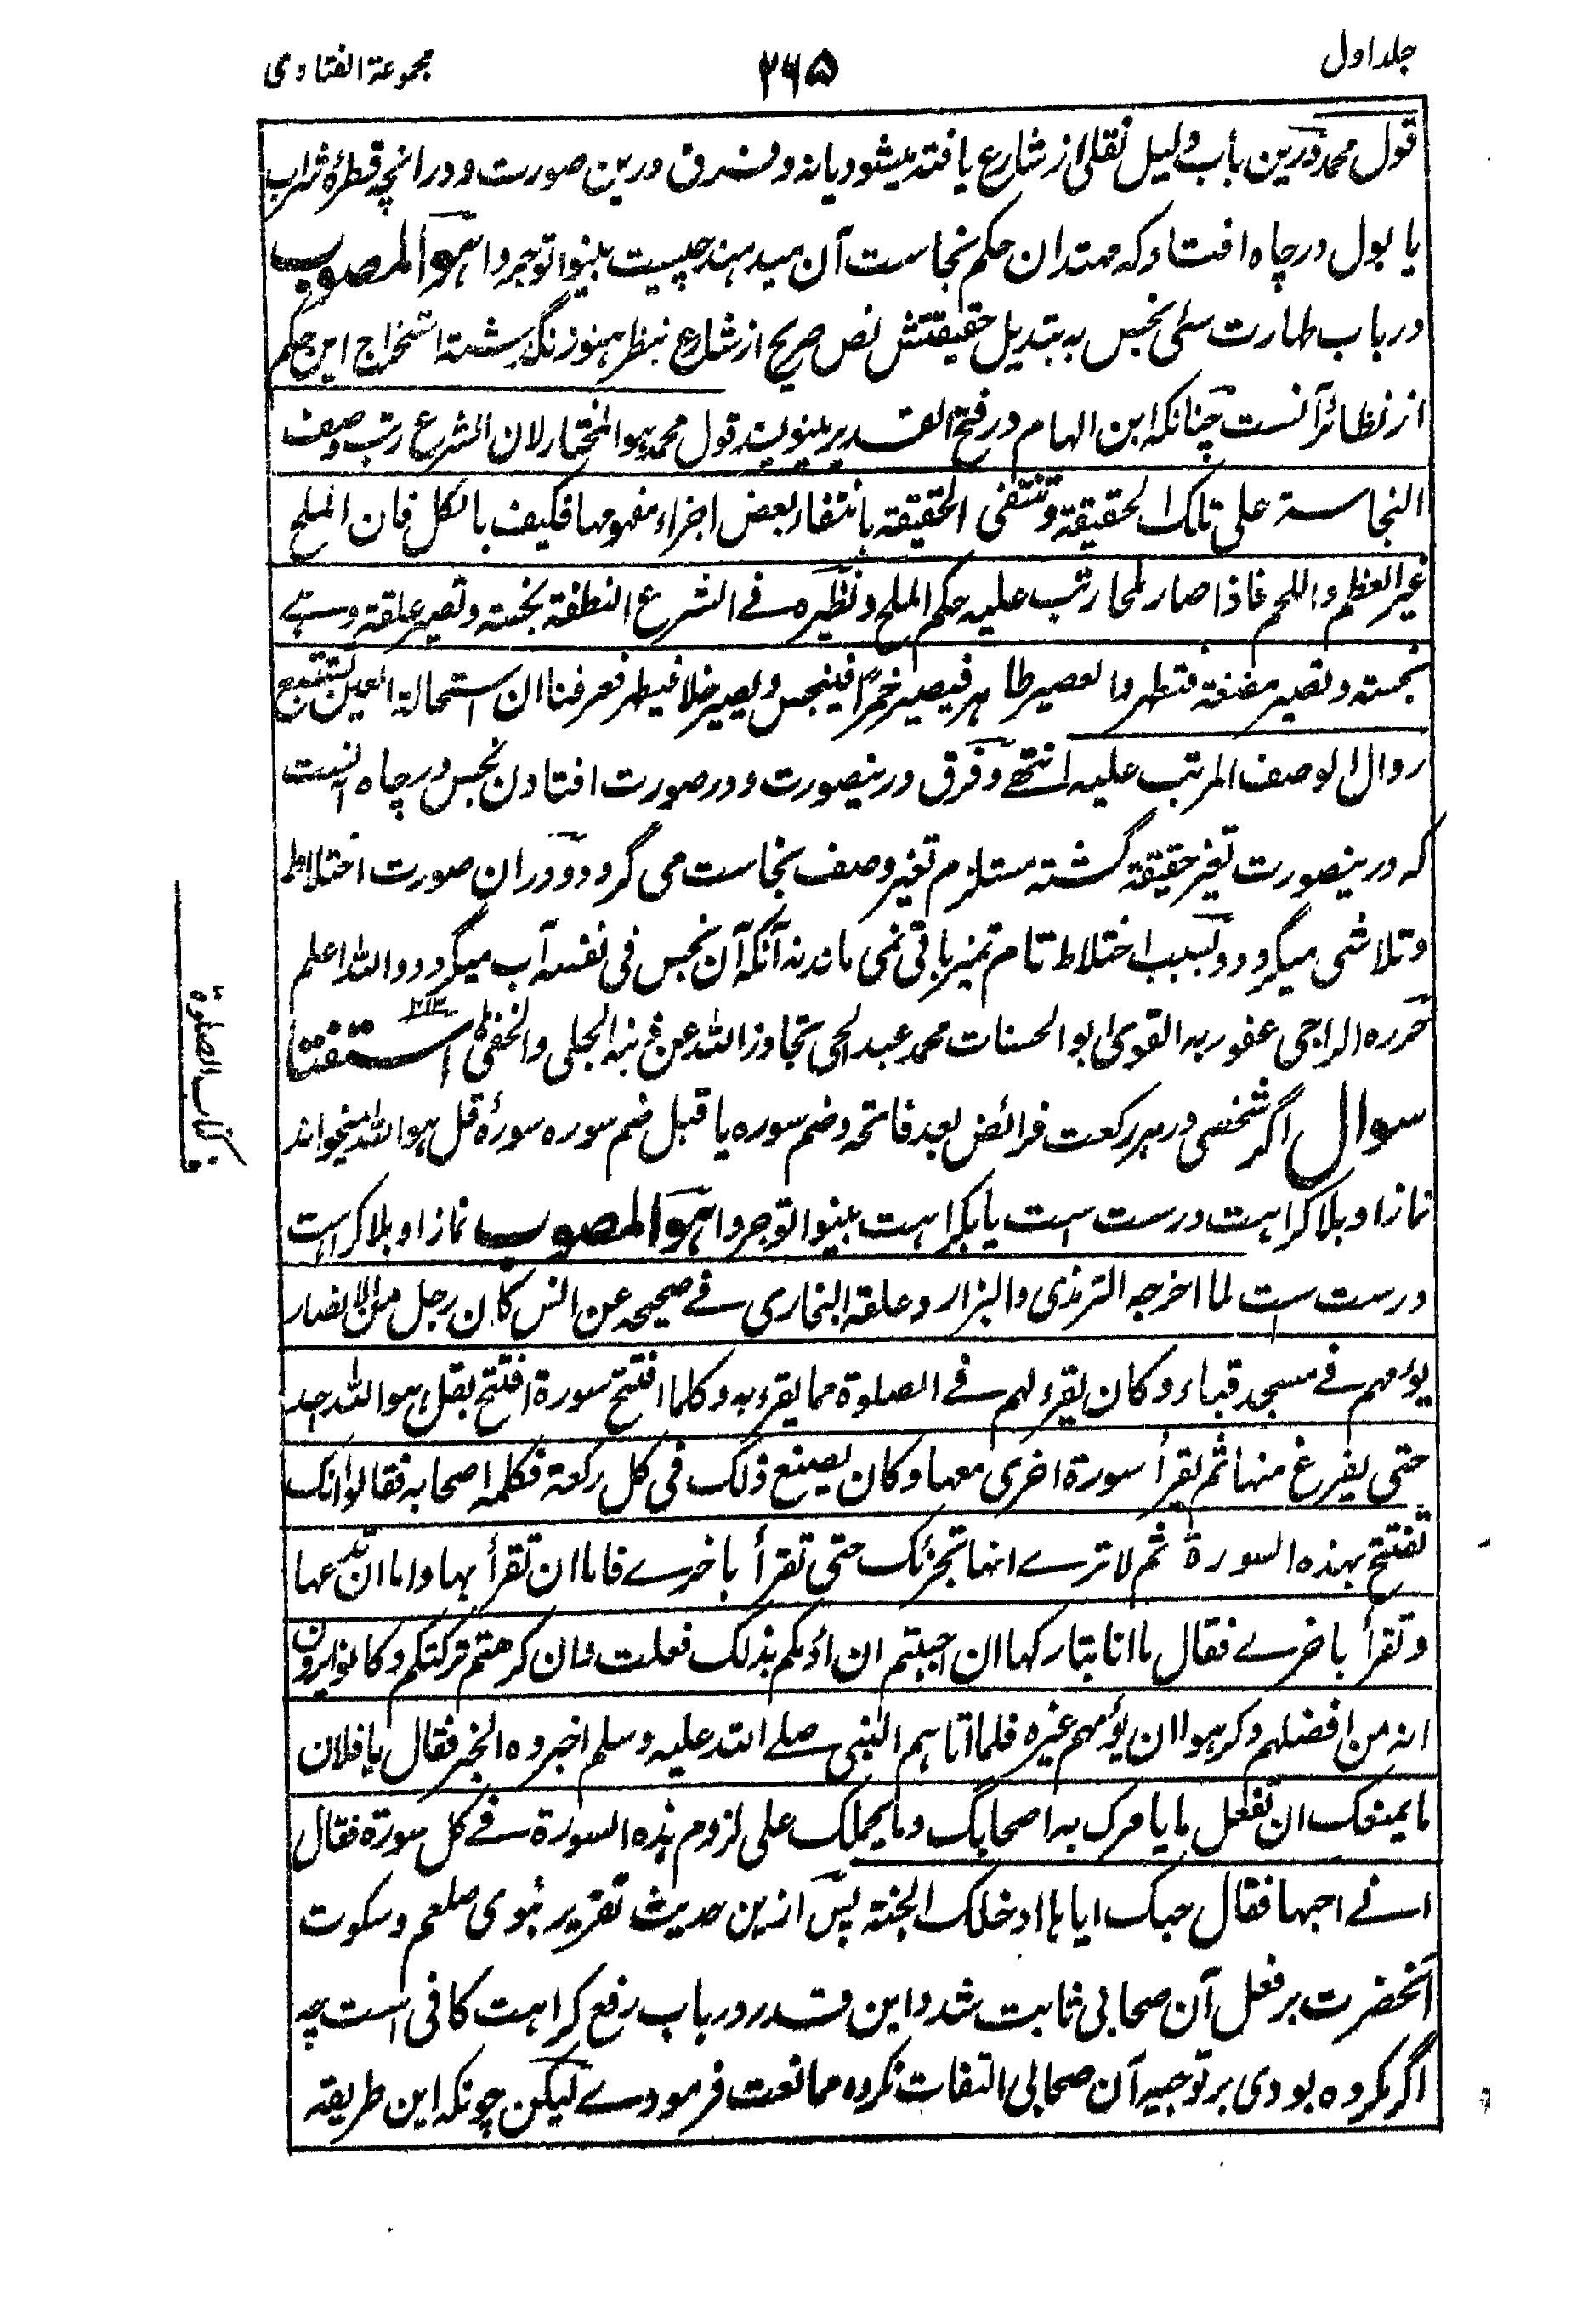 جلد اول
۲۶۵
مجموعة الفتاوی
قول محمد درین باب دلیل نقلی از شارع یافته میشود یا نه و فرق درین صورت و در انچه قطرهٔ شراب
یا بول در چاه افتاد که مهتدان حکم نجاست آن میدهند چیست بینوا توجروا هو المصوب
در باب طهارت شی نجس به تبدیل حقیقتش نص صریح از شارع بنظر هنوز نگذشته استخراج این حکم
از نظائر آنست چنانکه ابن الهام در فتح القدیر مینویسد قول محمد هو المختار لان الشرع رتب وصف
النجاسة علی تلک الحقیقة و تنتفی الحقیقة بانتفاء بعض اجزاء مفهومها فکیف بالکل فان الملح
غیر العظم واللحم فاذا صار لمحا رتب علیه حکم الملح ونظیره فے الشرع النطفة نجسة وتصیر علقة وهے
نجسته وتصیر مضغة فتطهر والعصیر طاهر فیصیر خمرا فینجس ویصیر خلا فیطهر فعرفنا ان استحالة العین تستتبع
زوال الوصف المرتب علیه انتهے و فرق درینصورت و در صورت افتادن نجس در چاه آنست
که درینصورت تغیر حقیقة گشته مستلزم تغیر وصف نجاست می گردد و در ان صورت اختلاط
و تلاشی میگردد و بسبب اختلاط تام تمیز باقی نمی ماند نه آنکه آن نجس فی نفسه آب میگردد والله اعلم
حرره الراجی عفو ربه القوی ابو الحسنات محمد عبد الحی تجاوز الله عن ذنبه الجلی والخفی استفتا
سوال اگر شخصی در هر رکعت فرائض بعد فاتحه و ضم سوره یا قبل ضم سوره سورۂ قل هو الله میخواند
نماز او بلا کراهت درست است یا بکراهت بینوا توجروا هو المصوب نماز او بلا کراهت
درست ست لما اخرجه الترمذی والبزار وعلقه البخاری فے صحیحه عن انس کان رجل من الانصار
یؤمهم فے مسجد قباء وکان یقرء لهم فے الصلوة مما یقرء به وکلما افتتح سورة افتتح بقل هو الله احد
حتی یفرغ منها ثم یقرأ سورة اخری معها وکان یصنع ذلک فی کل رکعة فکلمه اصحابه فقالوا انک
تفتتح بهذه السورة ثم لا ترے انها تجزئک حتی تقرأ باخرے فاما ان تقرأ بها واما ان تدعها
وتقرأ باخرے فقال ما انا بتارکها ان احببتم ان اؤمکم بذلک فعلت وان کرهتم ترکتکم وکانوا یرون
انه من افضلهم وکرهوا ان یؤمهم غیره فلما اتاهم النبی صلے الله علیه وسلم اخبروه الخبر فقال یا فلان
ما یمنعک ان تفعل ما یامرک به اصحابک وما یحملک علی لزوم هذه السورة فے کل سورة فقال
انے احبها فقال حبک ایاها ادخلک الجنة پس ازین حدیث تقریر نبوی صلعم و سکوت
آنحضرت بر فعل آن صحابی ثابت شد و این قدر در باب رفع کراهت کافی است چه
اگر مکروه بودی بر توجیه آن صحابی التفات نکرده ممانعت فرمودے لیکن چونکه این طریقه
کتاب الصلوة